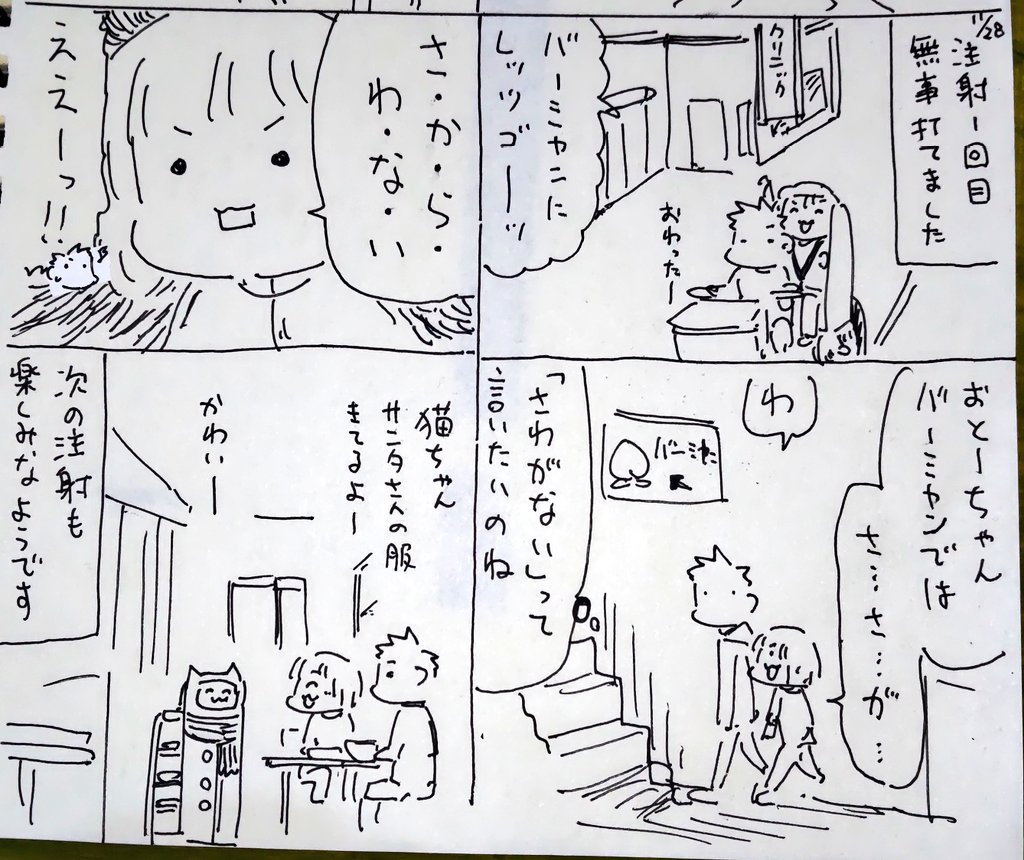 11/28
注射一回目
無事打てました
クリニック
おわったー
バーミャンに
レッツゴーーッ
さ・か・ら・
わ・な・い
ええーっ!!
おとーちゃん
バーミヤンでは
さ……さ……が…
わ
バーミヤン
「さわがない」って
言いたいのね
猫ちゃん
サンタさんの服
きてるよー
かわいー
次の注射も
楽しみなようです